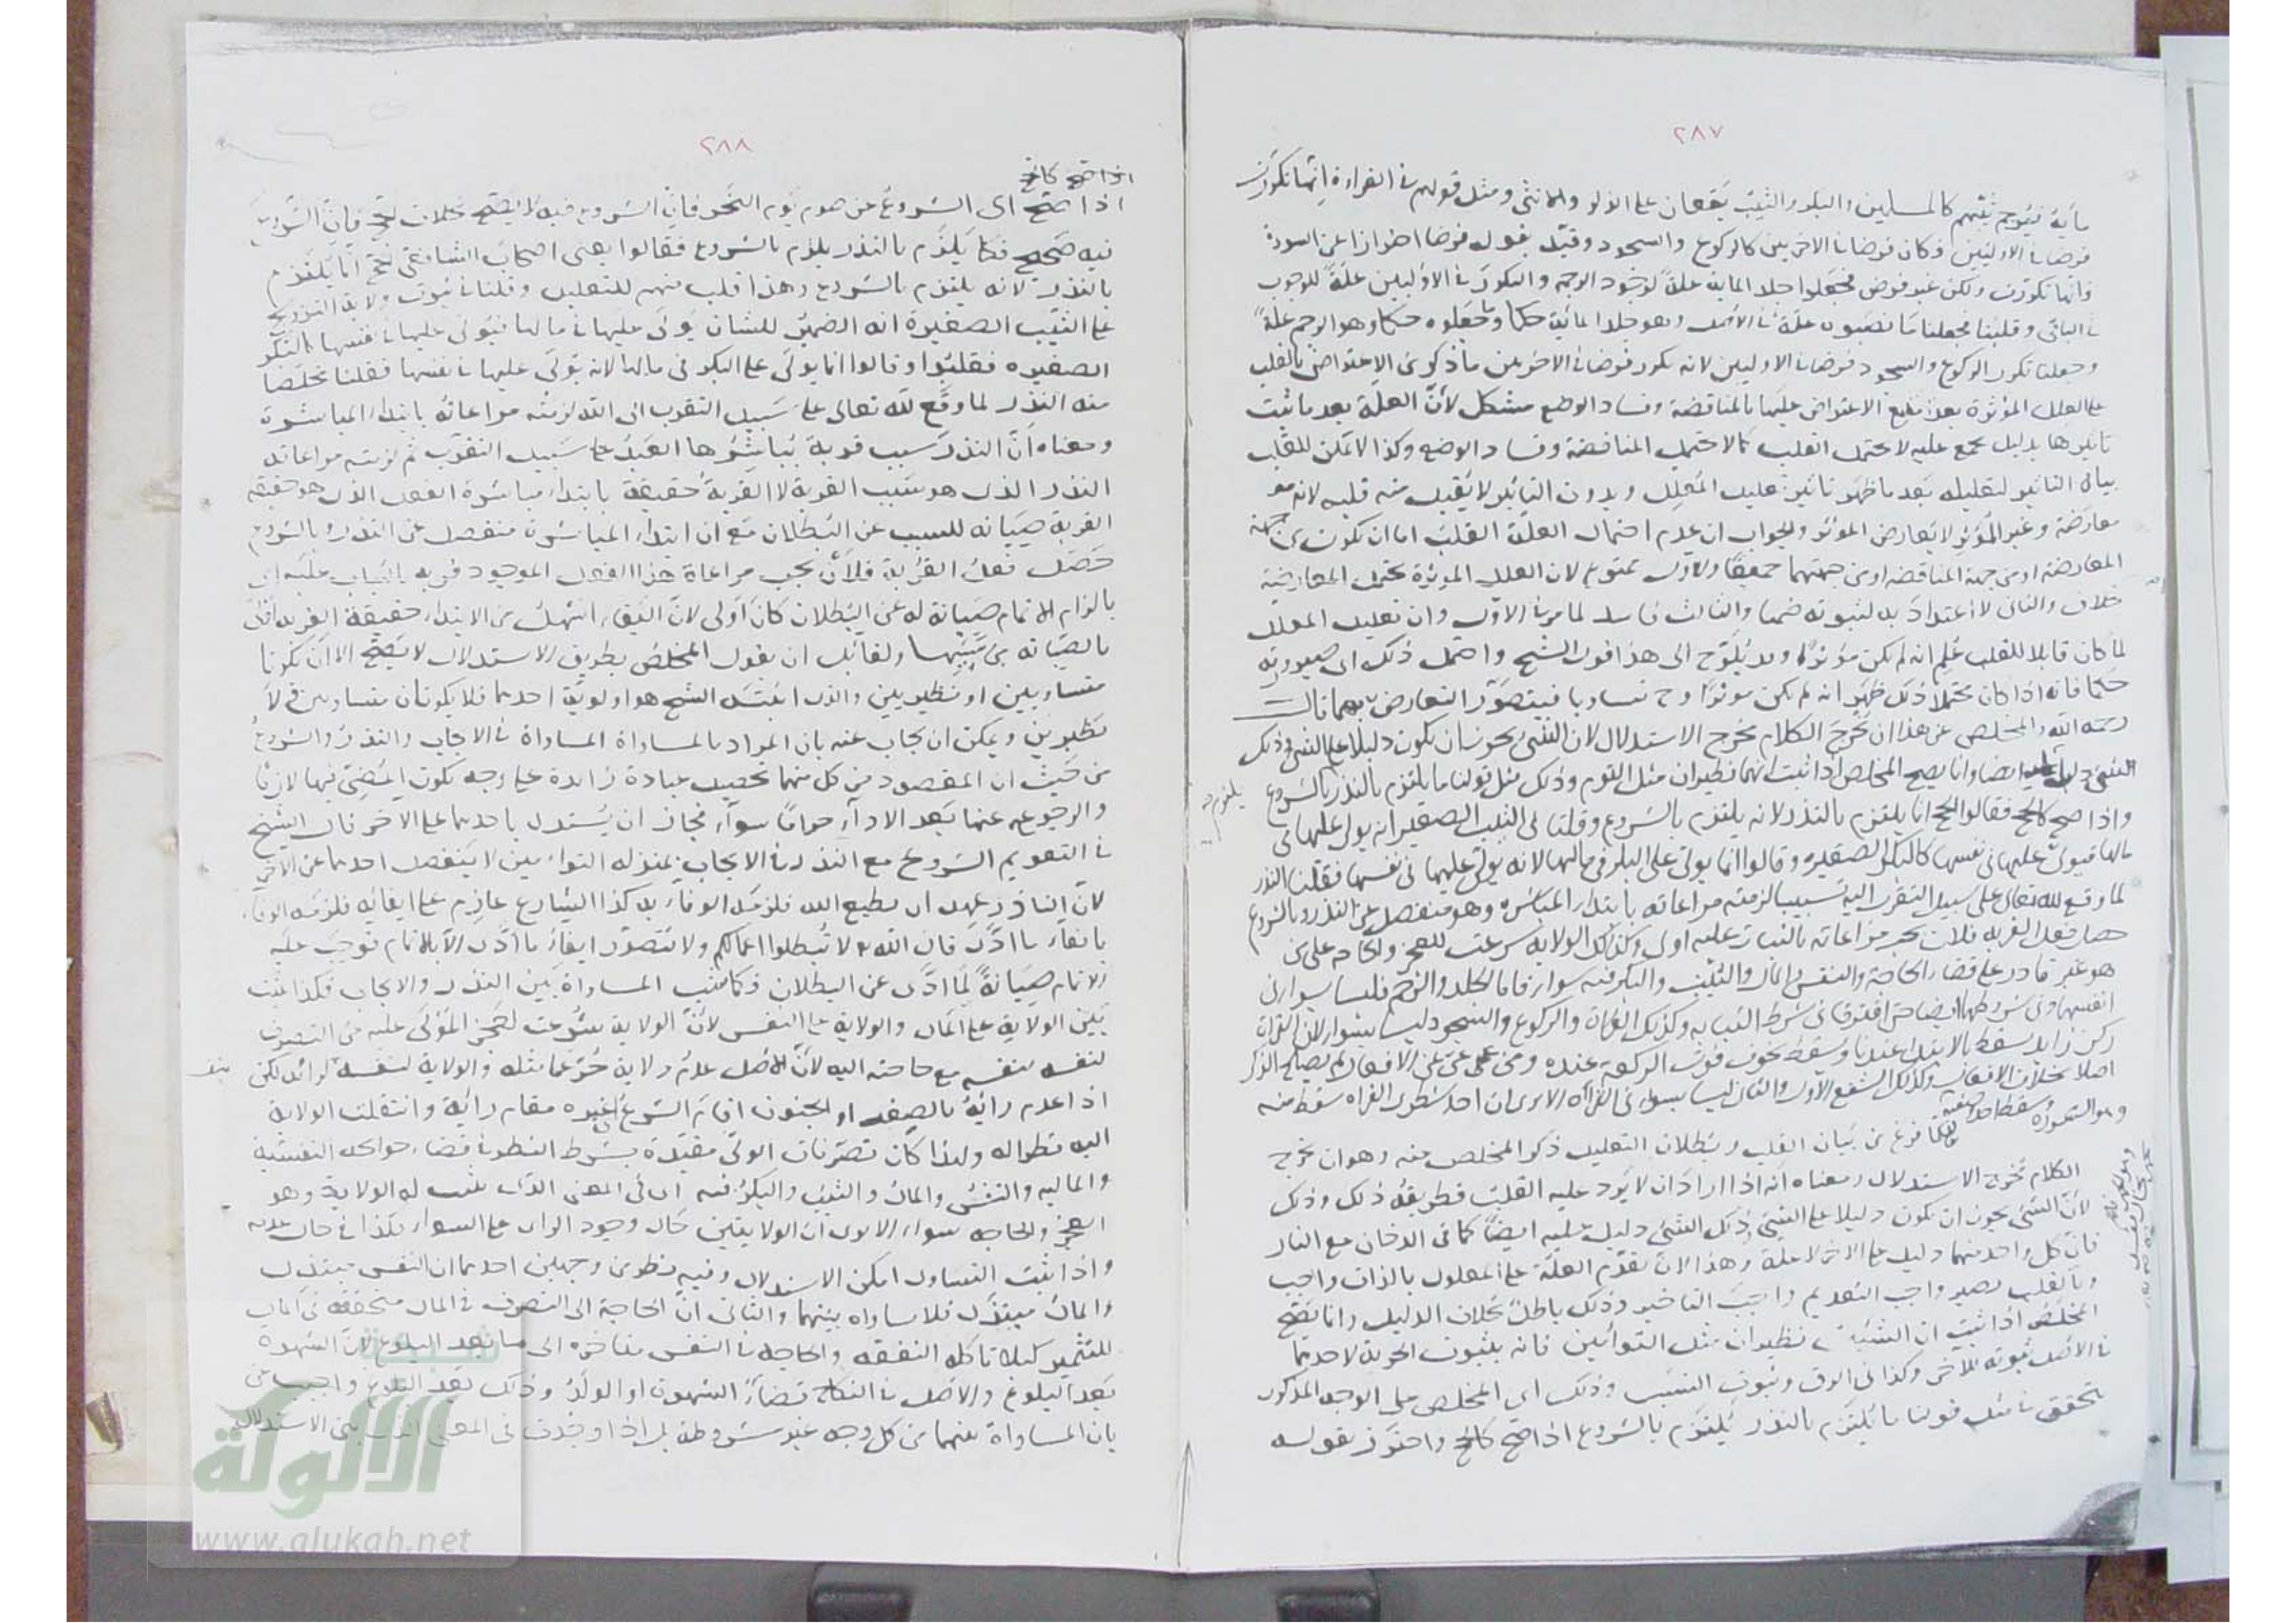 ٢٨٧
مأية فيرجم ثيبهم كالمسلمين والبكر والثيب يقعان على الذكر والانثى ومثل قولهم في القراءة انما تكررت
فرضا في الاوليين فكان فرضا في الاخريين كالركوع والسجود وقيد بقوله فرضا احترازا عن السورة
فانها تكررت ولكن غير فرض فجعلوا جلد الماية علة لوجود الرجم والتكرر في الاوليين علة للوجوب
في الباقي وقلبنا فجعلنا ما نصبوه علة في الاصل وهو جلد المائة حكما وما جعلوه حكما وهو الرجم علة
وجعلنا تكرر الركوع والسجود فرضا في الاوليين لانه تكرر فرضا في الاخريين ما ذكر من الاعتراض بالقلب
على العلل المؤثرة بعد منع الاعتراض عليها بالمناقضة وفساد الوضع مشكل لأن العلة بعد ما ثبت
تاثيرها بدليل مجمع عليه لا يحتمل القلب كما لا يحتمل المناقضة وفساد الوضع وكذا لا يمكن للقالب
بيان التاثير لتعليله بعد ما ظهر تاثير تعليل المعلل وبدون التاثير لا يقبل منه قلبه لانه
معارضة وغير المؤثر لا يعارض المؤثر والجواب ان عدم احتمال العلة القلب اما ان تكون من جهة
المعارضة او من جهة المناقضة او من جهتهما جميعا والاول ممنوع لان العلل المؤثرة تحتمل المعارضة
خلاف والثاني لا اعتداد به لثبوته ضمنا والثالث فاسد لما مر في الاول وان تعليل المعلل
لما كان قابلا للقلب علم انه لم يكن مؤثرا وقد يلوح الى هذا قول الشيخ واحتمل ذلك اي صيرورته
حكما فانه اذا كان محتملا ذلك ظهر انه لم يكن موثرا وح تساويا فيتصور التعارض بينهما قال
رحمه الله والمخلص عن هذا ان يخرج الكلام مخرج الاستدلال لان الشيء يجوز ان يكون دليلا على الشيء وذلك
الشيء دليلا عليه ايضا وانما يصح المخلص اذا ثبت انهما نظيران مثل التوم وذلك مثل قولنا ما يلتزم بالنذر يلتزم بالشروع
واذا صح كالحج فقالوا الحج انما يلتزم بالنذر لانه يلتزم بالشروع وقلنا في الثيب الصغيرة انه يولى عليها في
مالها فيولى عليها في نفسها كالبكر الصغيرة وقالوا انما يولى على البكر في مالها لانه يولى عليها في نفسها فقلنا النذر
لما وقع لله تعالى على سبيل التقرب اليه تسبيبا لزمته مراعاته بابتداء المباشرة وهو منفصل عن النذر وبالشروع
حصل فعل القربة فلان يجب مراعاته بالثبات عليه اولى وكذلك الولاية شرعت للعجز والحاجة على من
هو غير قادر على قضاء الحاجة والنفس والمال والثيب والبكر فيه سواء فاما الجلد والرجم فليسا بسواء في
انفسهما وفي شروطهما ايضا حتى افترقا في شرط الثيابة وكذلك القراءة والركوع والسجود ليسا بسواء لان القراءة
ركن زايد تسقط بالاقتداء عندنا ويسقط بخوف فوت الركعة عنده ومن عجز عن الافعال لم يصلح الذكر
اصلا بخلاف الافعال وكذلك الشفع الاول والثاني ليسا بسواء في القراءة الا ترى ان احد شطري القراءة سقط منه
وهو السورة وسقط احد وصفيه
لما فرغ من بيان القلب وبطلان التعليل ذكر المخلص منه وهو ان يخرج
الكلام مخرج الاستدلال ومعناه انه اذا اراد ان لا يرد عليه القلب فطريقه ذلك وذلك
لأن الشيء يجوز ان يكون دليلا على الشيء وذلك الشيء دليل عليه ايضا كما في الدخان مع النار
فان كل واحد منهما دليل على الاخر لا علة وهذا لان تقدم العلة على المعلول بالذات واجب
وبالقلب يصير واجب التقديم واجب التاخير وذلك باطل بخلاف الدليل وانما يصح
المخلص اذا ثبت ان الشيئين نظيران مثل التوأمين فانه بثبوت الحرية لاحدهما
في الاصل ثبوته للاخر وكذا في الرق وثبوت النسب وذلك اي المخلص على الوجه المذكور
يتحقق في مثل قولنا ما يلتزم بالنذر يلتزم بالشروع اذا صح كالحج واحترز بقوله
٢٨٨
اذا صح كالحج
اذا صح اي الشروع عن صوم يوم النحر فان الشروع فيه لا يصح بخلاف الحج فان الشروع
فيه صحيح فكما يلزم بالنذر يلزم بالشروع فقالوا يعني اصحاب الشافعي الحج انما يلتزم
بالنذر لانه يلتزم بالشروع وهذا قلب منهم للتعليل وقلنا في ثبوت ولاية التزويج
على الثيب الصغيرة انه الضمير للشان يولى عليها في مالها فيولى عليها في نفسها كالبكر
الصغيرة فقلبوا وقالوا انما يولى على البكر في مالها لانه يولى عليها في نفسها فقلنا تخلصا
منه النذر لما وقع لله تعالى على سبيل التقرب الى الله لزمته مراعاته بابتداء المباشرة
ومعناه أن النذر سبب قربة يباشرها العبد على سبيل التقرب ثم لزمته مراعاة
النذر الذي هو سبب القربة لا القربة حقيقة بابتداء مباشرة الفعل الذي هو حقيقة
القربة صيانة للسبب عن البطلان مع ان ابتداء المباشرة منفصل عن النذر وبالشروع
حصل فعل القربة فلأن يجب مراعاة هذا الفعل الموجود قربة بالثبات عليه اي
بالزام الاتمام صيانة له عن البطلان كان اولى لان البقاء اسهل من الابتداء وحقيقة القربة اولى
بالصيانة من سببها ولقائل ان يقول المخلص بطريق الاستدلال لا يصح الا ان يكونا
متساويين او نظيرين والذي اثبته الشيخ هو اولوية احدهما فلا يكونان متساويين ولا
نظيرين ويمكن ان يجاب عنه بان المراد بالمساواة المساواة في الايجاب والنذر والشروع
من حيث ان المقصود من كل منهما تحصيل عبادة زايدة على وجه يكون المضي فيها لازما
والرجوع عنها بعد الاداء حراما سواء فجاز ان يستدل باحدهما على الاخر قال الشيخ
في التقويم الشروع مع النذر في الايجاب بمنزلة التوامين لا ينفصل احدهما عن الاخر
لأن الناذر عهد ان يطيع الله فلزمه الوفاء به كذا الشارع عازم على ايفائه فلزمه الوفاء
بابقاء ما ادى قال الله ولا تبطلوا اعمالكم ولا يتصور ابقاء ما ادى الا بالاتمام فوجب عليه
الاتمام صيانة لما ادى عن البطلان فكما ثبت المساواة بين النذر والايجاب فكذا ثبت
بين الولاية على المال والولاية على النفس لأن الولاية شرعت لعجز المولى عليه من التصرف
لنفسه بنفسه مع حاجته اليه لأن الاصل عدم ولاية حر على مثله والولاية لنفسه لرائه لكن
اذا عدم رأيه بالصغر او الجنون اقام الشرع غيره مقام رأيه وانتقلت الولاية
اليه نظرا له ولهذا كان تصرفات الولي مقيدة بشرط النظر في قضاء حوائجه النفسية
والمالية والنفس والمال والثيب والبكر فيه اي في المعنى الذي يثبت له الولاية وهو
العجز والحاجة سواء الا ترى ان الولايتين حال وجود الراي على السواء فكذا في حال عدمه
واذا ثبت التساوي امكن الاستدلال وفيه نظر من وجهين احدهما ان النفس مبتذل
والمال مبتذل فلا مساواة بينهما والثاني ان الحاجة الى التصرف في المال متحققة في المال
للتثمير كيلا تاكله النفقة والحاجة في النفس متاخرة الى ما بعد البلوغ لأن الشهوة
بعد البلوغ والاصل في النكاح قضاء الشهوة او الولد وذلك بعد البلوغ واجيب عن
بان المساواة بينهما من كل وجه غير مشروطة بل اذا وجدت في المعنى الذي بنى الاستدلال
شبكة
الألوكة
www.alukah.net